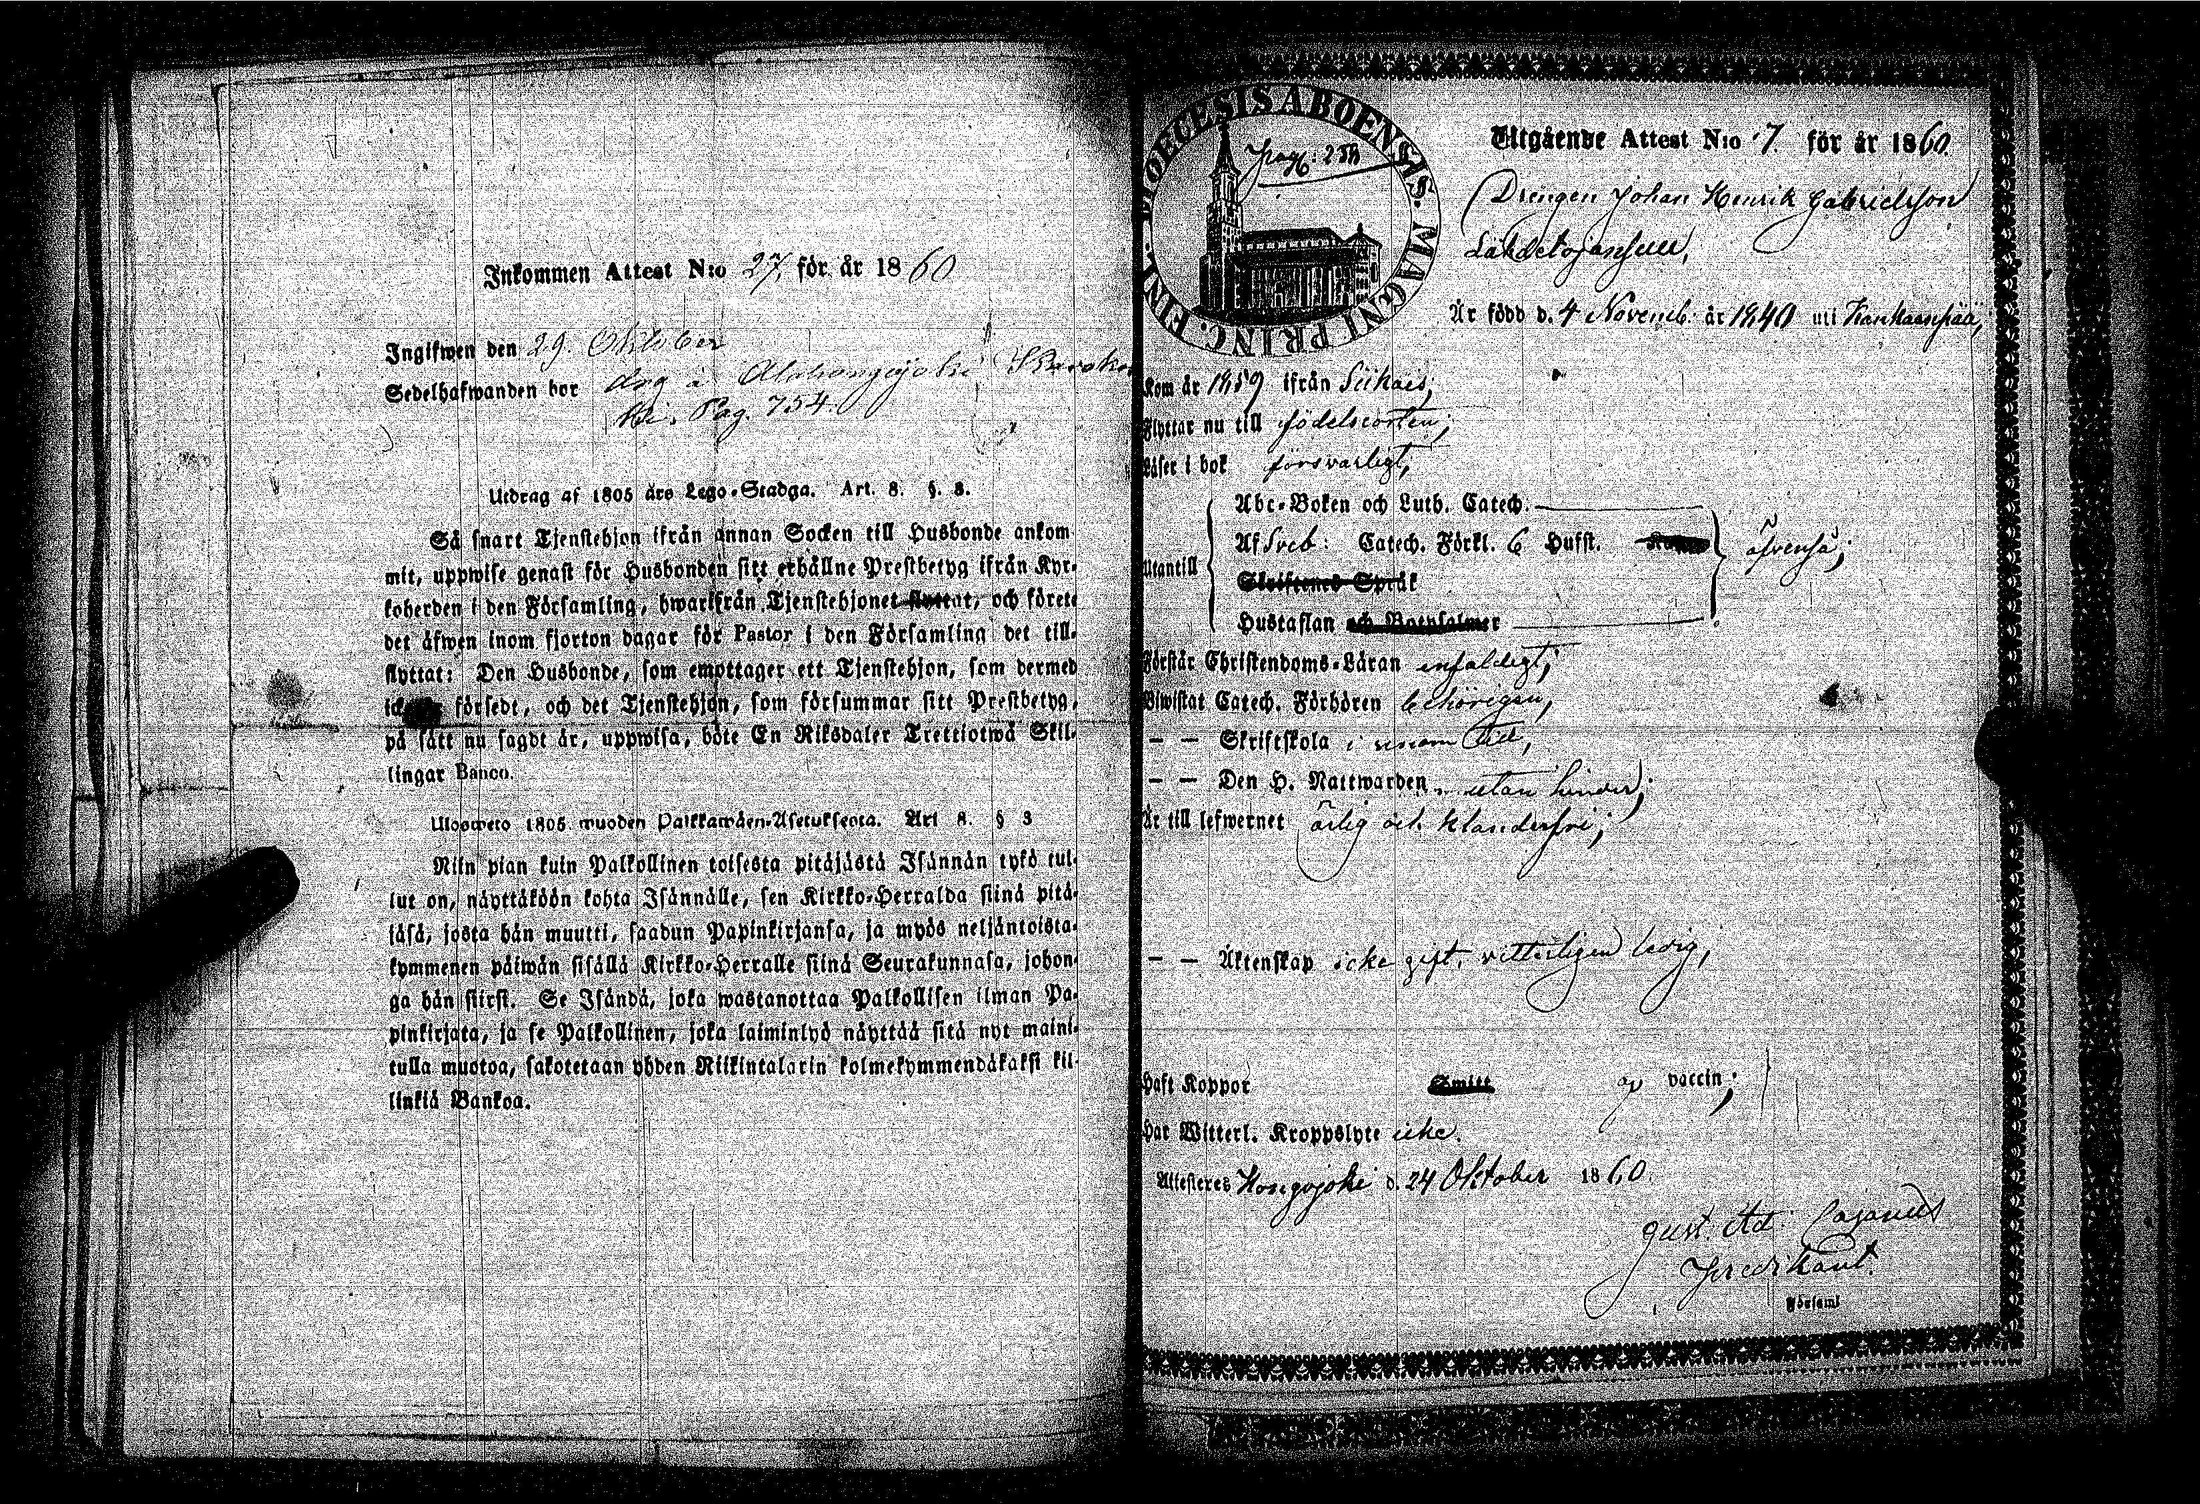 Inkommen Attest N:o 27. för år 1860
Ingifwen den 29. Oktober
Sedelhafwanden bor drg å Alahongojoki
Pag. 754.
Utdrag af 1805 års Lego-Stadga. Art. 8. §. 3.
Så snart Tjenstehjon ifrån annan Socken till Husbonde ankom-
mit, uppwise genast för Husbonden sitt erhållne Prestbetyg ifrån Kyr-
koherden i den Församling, hwarifrån Tjenstehjonet flyttat, och förete
det äfwen inom fjorton dagar för Pastor i den Församling det till-
flyttat: Den Husbonde, som emottager ett Tjenstehjon, som dermed
icke är försedt, och det Tjenstehjon, som försummar sitt Prestbetyg,
på sätt nu sagdt är, uppwisa, böte En Riksdaler Trettiotwå Skil-
lingar Banco.
Ulosweto 1805 wuoden Palkkawäen-Asetuksesta. Art 8. § 3
Niin pian kuin Palkollinen toisesta pitäjästä Isännän tykö tul-
lut on, näyttäköön kohta Isännälle, sen Kirkko-Herralda siinä pitä-
jäsä, josta hän muutti, saadun Papinkirjansa, ja myös neljäntoista-
kymmenen päiwän sisällä Kirkko-Herralle siinä Seurakunnasa, johon-
ga hän siirsi. Se Isändä, joka wastanottaa Palkollisen ilman Pa-
pinkirjata, ja se Palkollinen, joka laiminlyö näyttää sitä nyt maini-
tulla muotoa, sakotetaan yhden Riikintalarin kolmekymmendäkaksi kil-
linkiä Bankoa.
DIOECESIS ABOENSIS. MAGNI PRINC. FINL.
pag: 254
Utgående Attest N:o 7. för år 1860.
Drängen Johan Henrik Gabrielsson
Är född d. 4 Novemb: år 1840 uti Kankaanpää,
Kom år 1859 ifrån Siikais,
Flyttar nu till födelseorten,
Läser i bok försvarligt,
Utantill
Abc-Boken och Luth. Catech.
Af Sveb: Catech. Förkl. 6 Hufst.
äfvenså;
Skriftenes Språk
Hustaflan och Botpsalmer
Förstår Christendoms-Läran enfaldigt,
Biwistat Catech. Förhören behörigen,
— — Skriftskola i unom tid,
— — Den H. Nattwarden utan hinder,
Är till lefwernet ärlig och klanderfri;
— — Äktenskap icke gift, vitterligen ledig,
Haft Koppor Smitt af vaccin;
Har Witterl. Kroppslyte icke.
Attesteras Hongojoki d. 24 Oktober 1860.
Gust. Ad. Cajanus
Predikant.
Församl